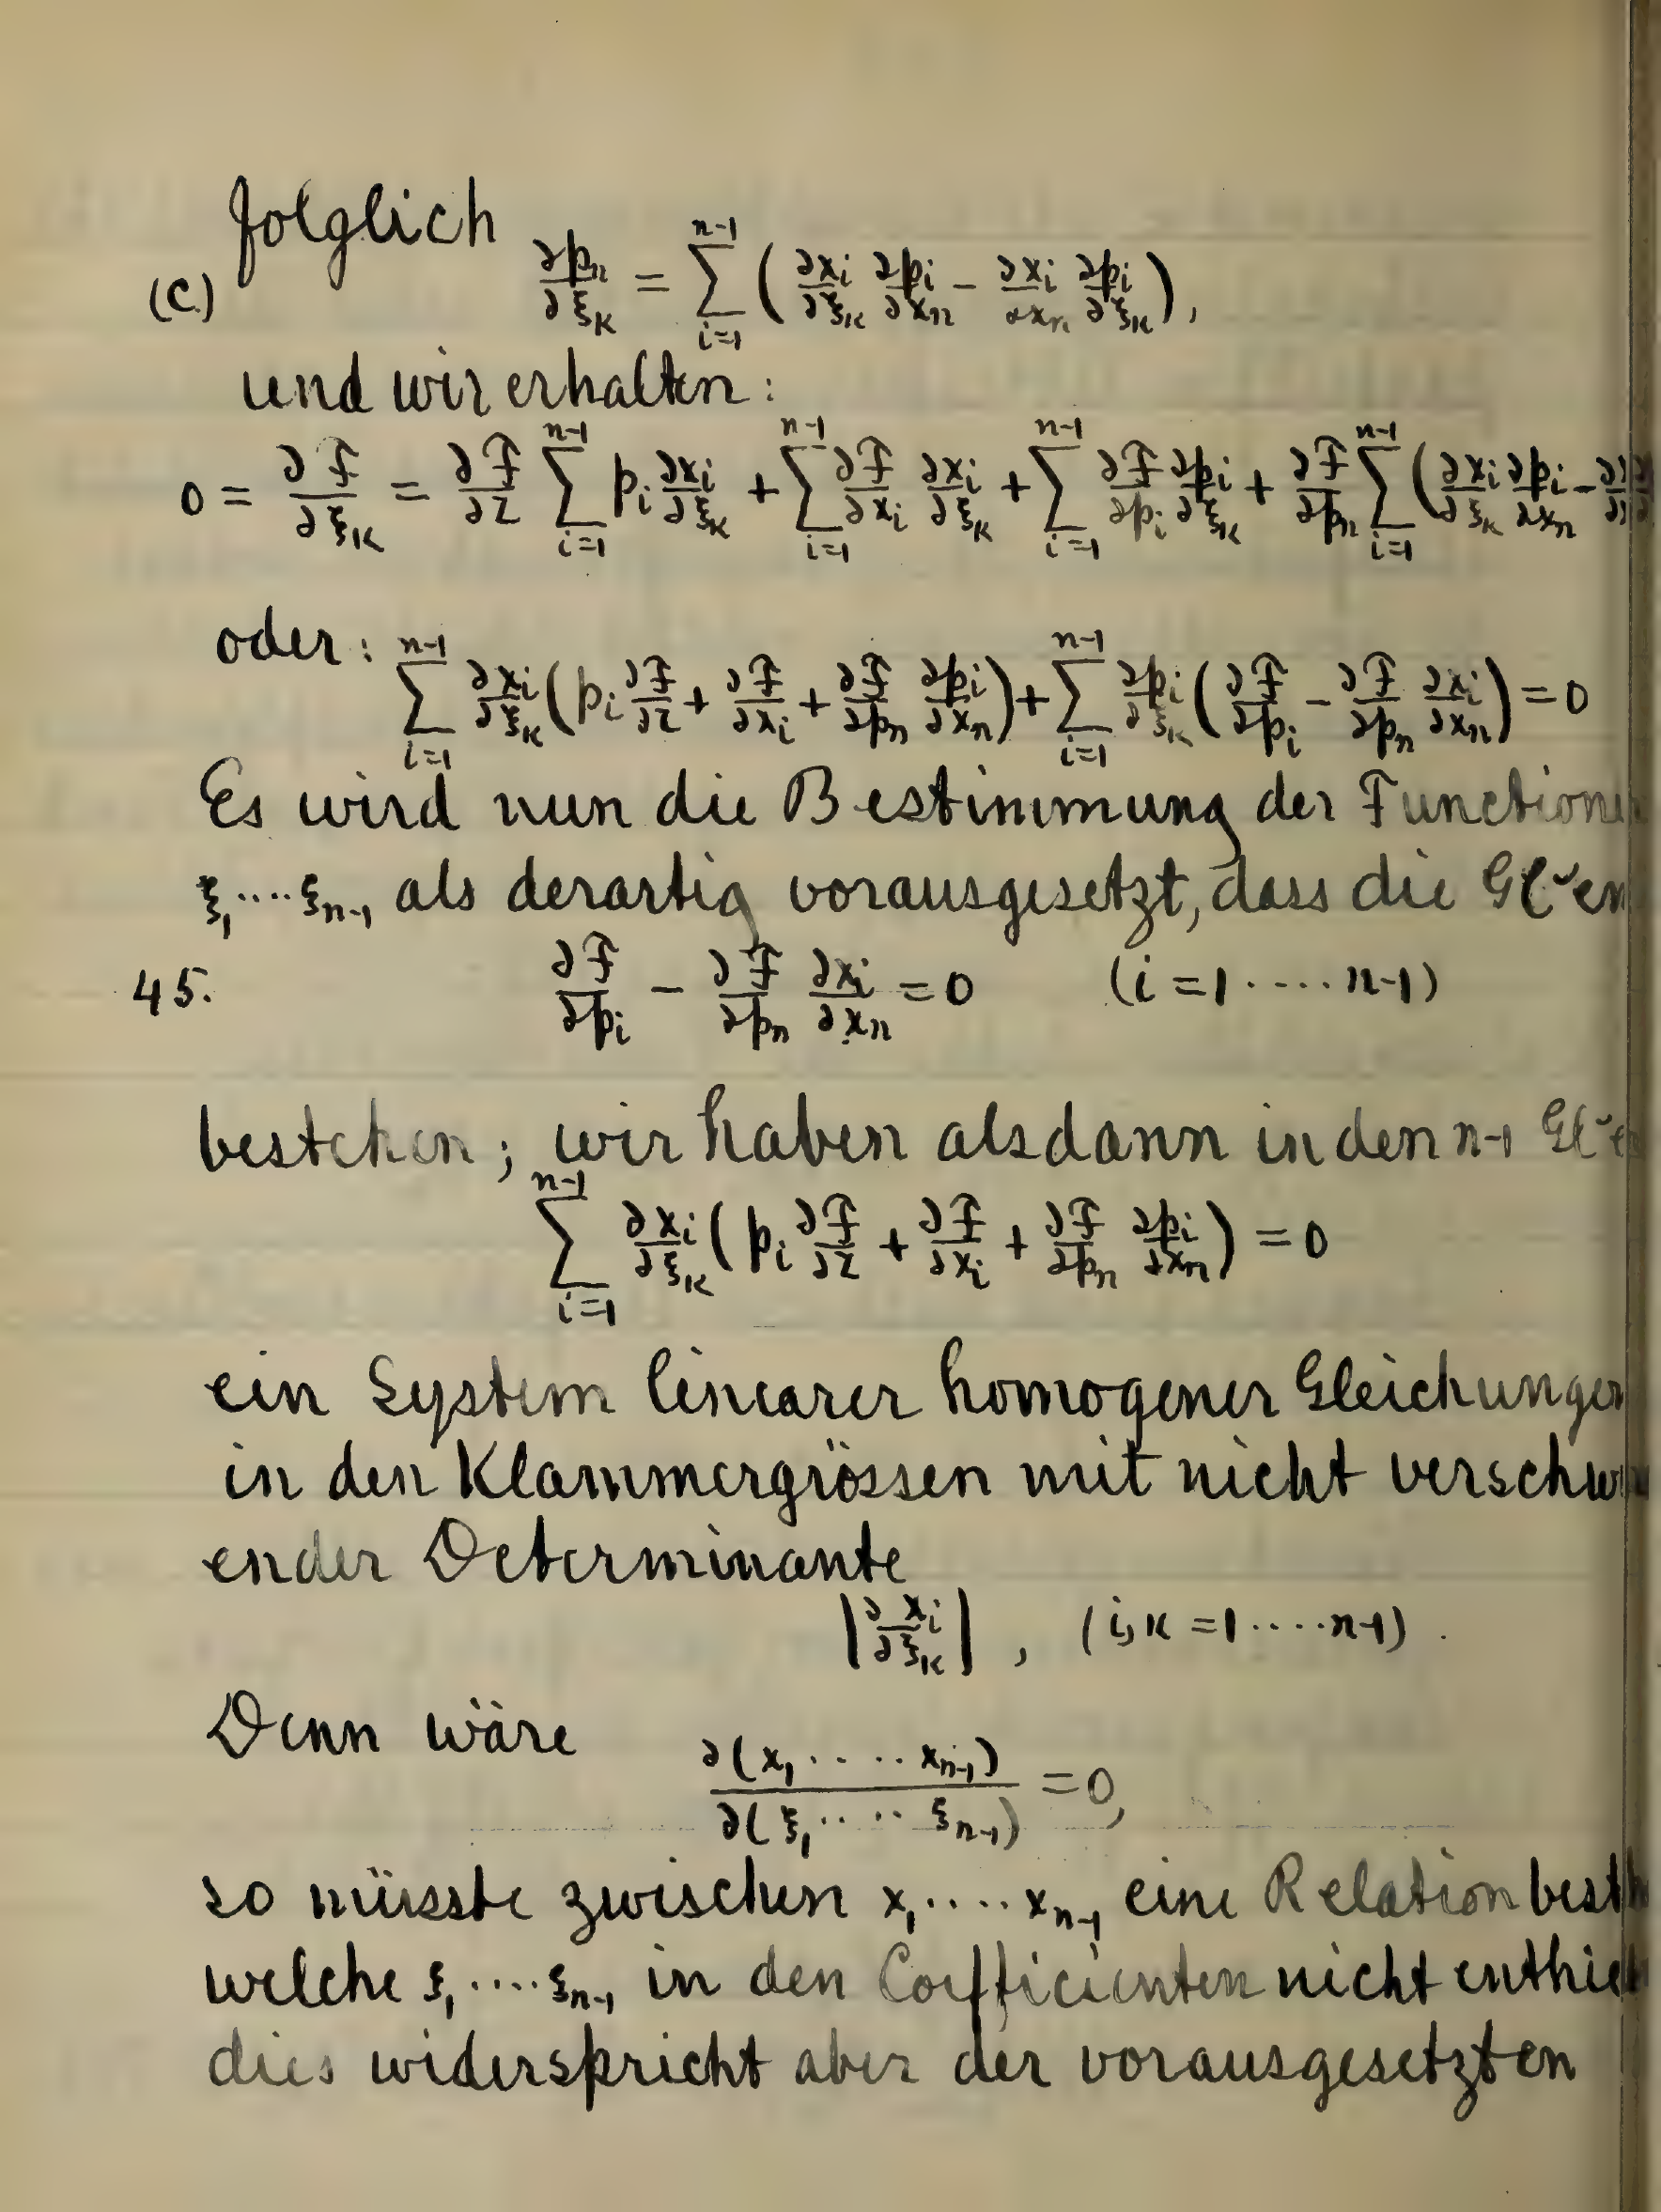 folglich
(C.) $\frac{\partial p_n}{\partial \xi_k} = \sum_{i=1}^{n-1} \left( \frac{\partial x_i}{\partial \xi_k} \frac{\partial p_i}{\partial x_n} - \frac{\partial x_i}{\partial x_n} \frac{\partial p_i}{\partial \xi_k} \right),$
und wir erhalten:
$0 = \frac{\partial F}{\partial \xi_k} = \frac{\partial F}{\partial z} \sum_{i=1}^{n-1} p_i \frac{\partial x_i}{\partial \xi_k} + \sum_{i=1}^{n-1} \frac{\partial F}{\partial x_i} \frac{\partial x_i}{\partial \xi_k} + \sum_{i=1}^{n-1} \frac{\partial F}{\partial p_i} \frac{\partial p_i}{\partial \xi_k} + \frac{\partial F}{\partial p_n} \sum_{i=1}^{n-1} ( \frac{\partial x_i}{\partial \xi_k} \frac{\partial p_i}{\partial x_n} -$
oder: $\sum_{i=1}^{n-1} \frac{\partial x_i}{\partial \xi_k} \left( p_i \frac{\partial F}{\partial z} + \frac{\partial F}{\partial x_i} + \frac{\partial F}{\partial p_n} \frac{\partial p_i}{\partial x_n} \right) + \sum_{i=1}^{n-1} \frac{\partial p_i}{\partial \xi_k} \left( \frac{\partial F}{\partial p_i} - \frac{\partial F}{\partial p_n} \frac{\partial x_i}{\partial x_n} \right) = 0$
Es wird nun die Bestimmung der Functione
$\xi_1 \cdots \xi_{n-1}$ als derartig vorausgesetzt, dass die Gl˘en
45. $\frac{\partial F}{\partial p_i} - \frac{\partial F}{\partial p_n} \frac{\partial x_i}{\partial x_n} = 0 \quad (i = 1 \cdots n-1)$
bestehen; wir haben alsdann in den n-1 Gl˘e
$\sum_{i=1}^{n-1} \frac{\partial x_i}{\partial \xi_k} \left( p_i \frac{\partial F}{\partial z} + \frac{\partial F}{\partial x_i} + \frac{\partial F}{\partial p_n} \frac{\partial p_i}{\partial x_n} \right) = 0$
ein System linearer homogener Gleichungen
in den Klammergrössen mit nicht verschw
ender Determinante
$\left| \frac{\partial x_i}{\partial \xi_k} \right|, \quad (i, k = 1 \cdots n-1).$
Denn wäre $\frac{\partial (x_1 \cdots x_{n-1})}{\partial (\xi_1 \cdots \xi_{n-1})} = 0,$
so müsste zwischen $x_1 \cdots x_{n-1}$ eine Relation best
welche $\xi_1 \cdots \xi_{n-1}$ in den Coefficienten nicht enthie
dies widerspricht aber der vorausgesetzten